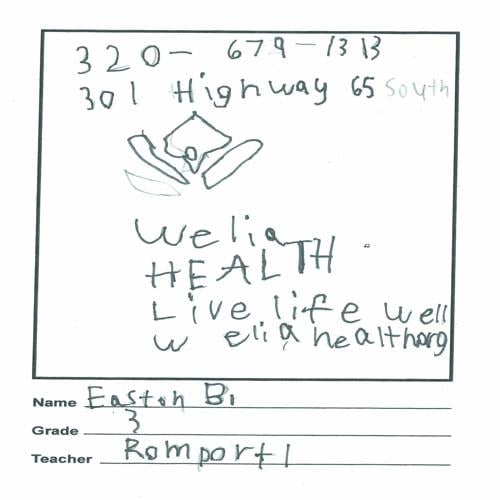 320- 679-1313
301 Highway 65 South
Welia
HEALTH
Live life well
w eliahealthorg
Name Easton B.
Grade 3
Teacher Romportl